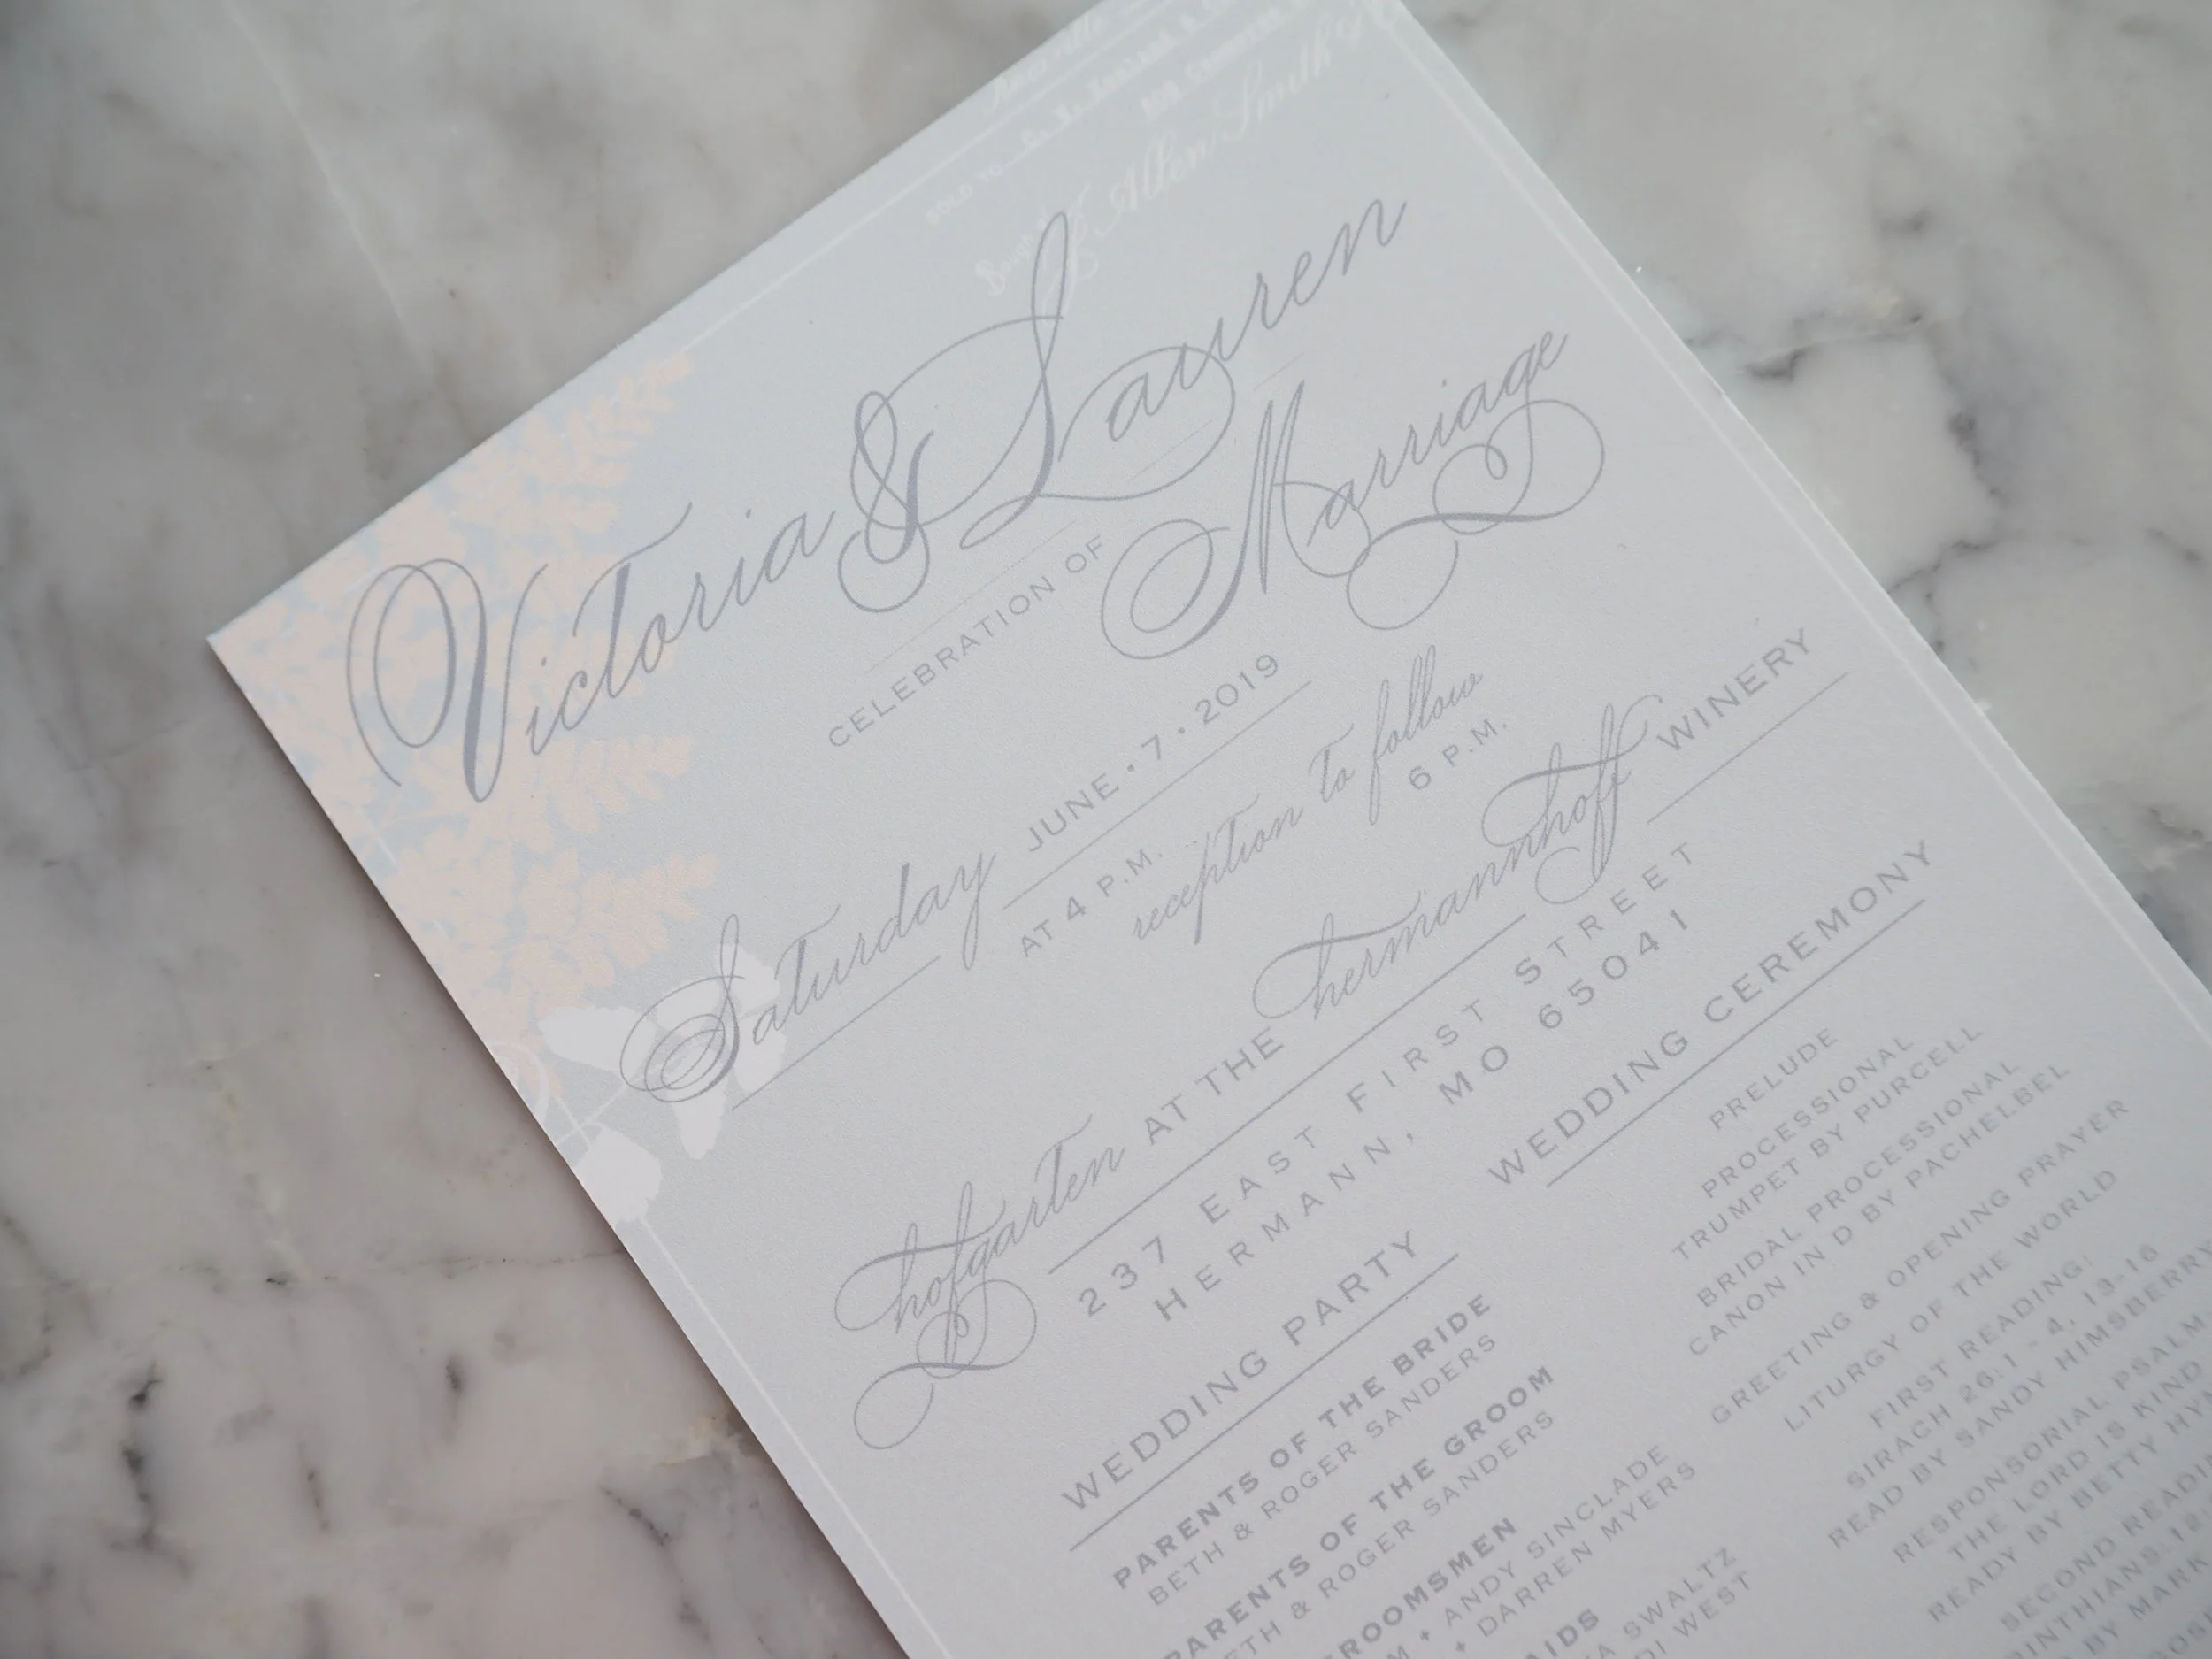 SOLD TO
Allen Smith
Victoria & Lauren
CELEBRATION OF Marriage
Saturday JUNE • 7 • 2019
AT 4 P.M. ... reception to follow
6 P.M.
hofgarten AT THE hermannhoff WINERY
237 EAST FIRST STREET
HERMANN, MO 65041
WEDDING PARTY
PARENTS OF THE BRIDE
BETH & ROGER SANDERS
PARENTS OF THE GROOM
BETH & ROGER SANDERS
GROOMSMEN
+ ANDY SINCLADE
+ DARREN MYERS
SWALTZ
WEST
WEDDING CEREMONY
PRELUDE
PROCESSIONAL
TRUMPET BY PURCELL
BRIDAL PROCESSIONAL
CANON IN D BY PACHELBEL
GREETING & OPENING PRAYER
LITURGY OF THE WORLD
FIRST READING:
SIRACH 26:1 - 4, 13-16
READ BY SANDY HIMSBERRY
RESPONSORIAL PSALM
THE LORD IS KIND
READY BY BETTY
SECOND
BY MARK